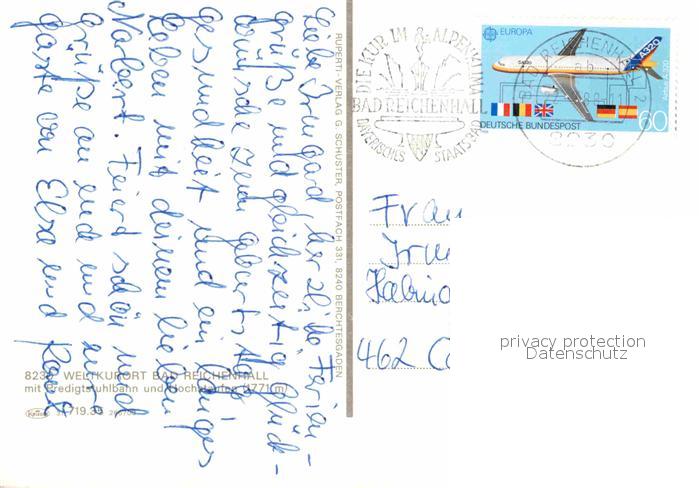 Liebe Irmgard, herzliche Ferien-
grüße und gleichzeitig Glück-
wünsche zum Geburtstag.
Gesundheit und ein langes
Leben mit deinem lieben
Norbert. Feiert schön und
Grüße an euch und eure
Gäste von Elke und
RUPERTI-VERLAG G. SCHUSTER, POSTFACH 331, 8240 BERCHTESGADEN
8230 WELTKURORT BAD REICHENHALL
mit Predigtstuhlbahn und Hochstaufen (1771 m)
Krüger 719.35
DIE KUR IM ALPENKLIMA
BAD REICHENHALL
BAYERISCHES STAATSBAD
BAD REICHENHALL
8230
EUROPA
A320
Airbus A 320
DEUTSCHE BUNDESPOST
60
Frau
462
privacy protection
Datenschutz